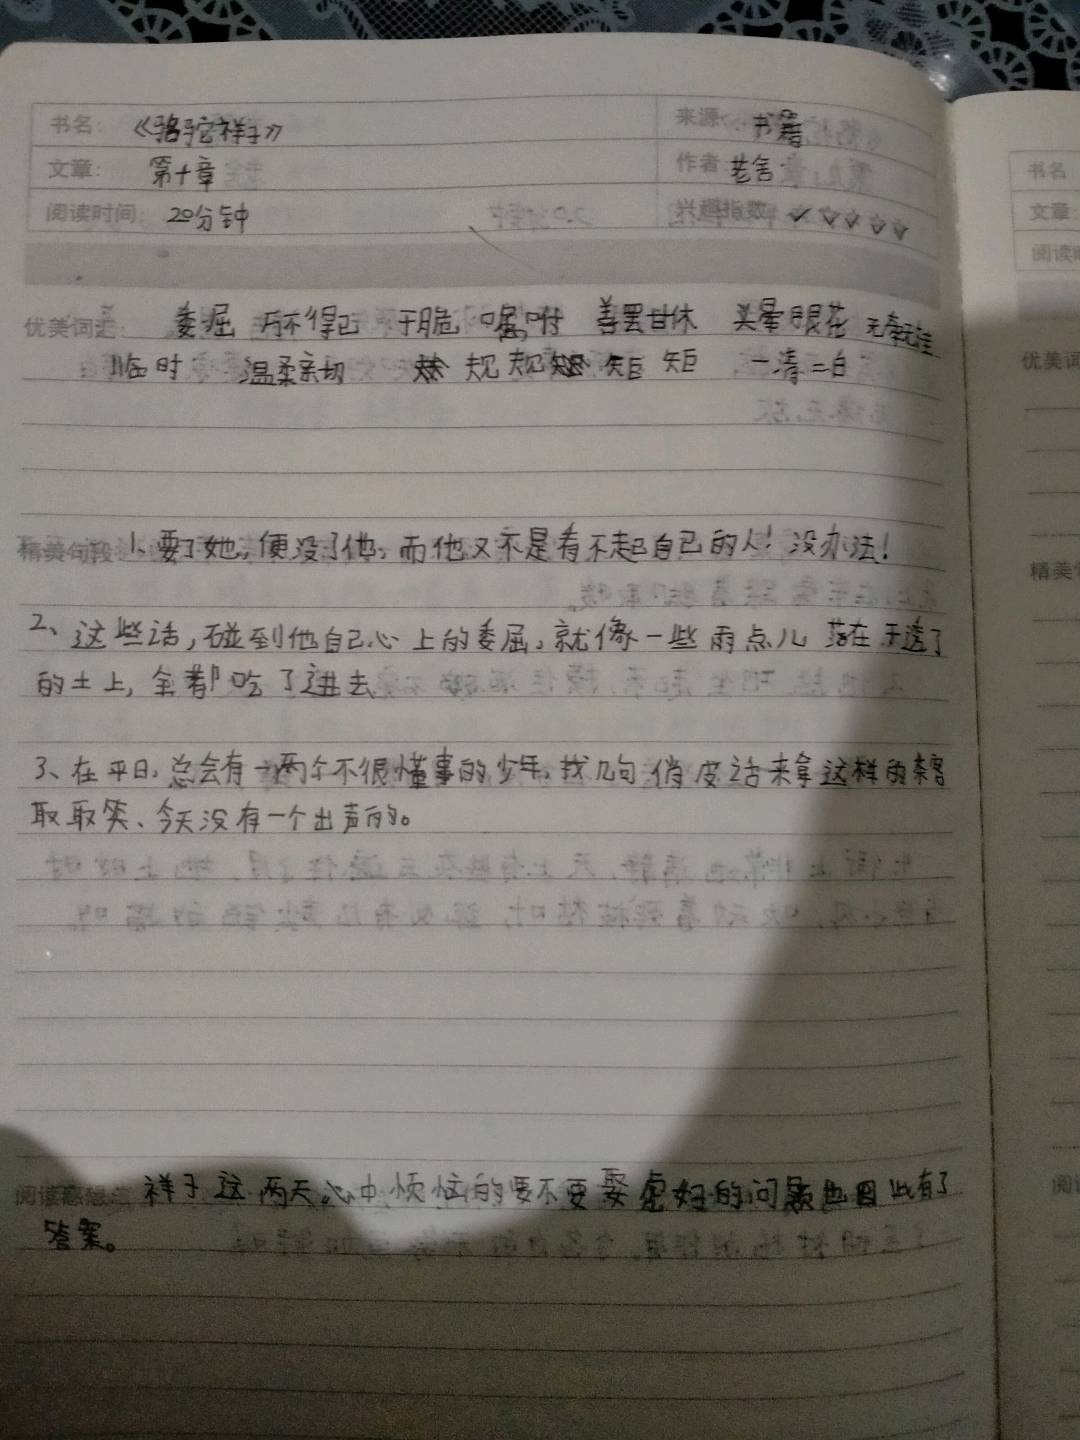 书名： 《骆驼祥子》 来源： 书籍
文章： 第十章 作者 老舍
阅读时间： 20分钟 兴趣指数 ☆☆☆☆☆☆
优美词迹： 委屈 万不得已 干脆 嘱咐 善罢甘休 头晕眼花 无牵无挂
临时 温柔亲切 规规矩矩 一清二白
精美句段 1、要了她，便没了他，而他又不是看不起自己的人！没办法！
2、这些话，碰到他自己心上的委屈，就像一些雨点儿落在干透了
的土上，全都吃了进去
3、在平日，总会有一两个不很懂事的少年，找几句俏皮话来拿这样的茶客
取取笑、今天没有一个出声的。
阅读感想： 祥子这两天心中烦恼的要不要娶虎妞的问题也因此有了
答案。
书名
文章：
阅读
优美词
精美
阅